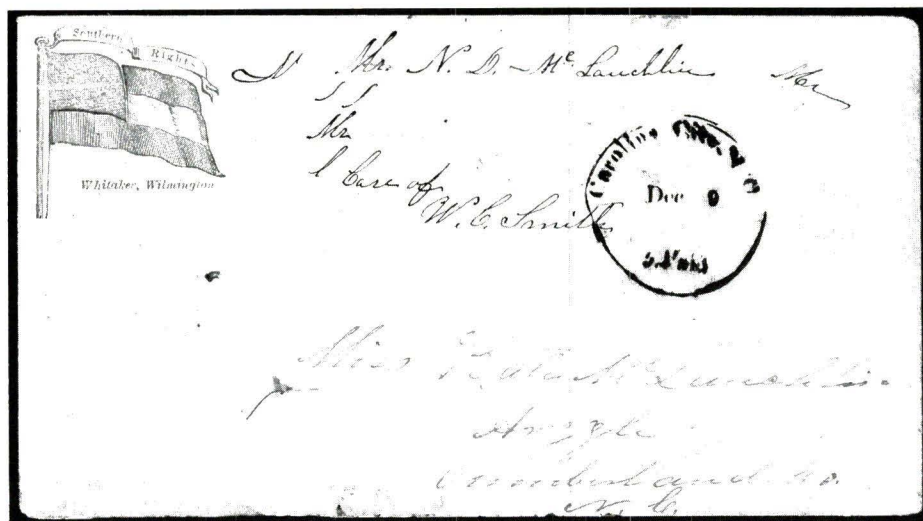 Southern Rights
Whitaker, Wilmington
N Mrs. N. D. McLauchlin Mr
Mr
Care of
W. C. Smith
Carolina City, N C
Dec 9
5 Paid
Miss Kate McLauchlin
Argyle
Cumberland Co.
N. C.